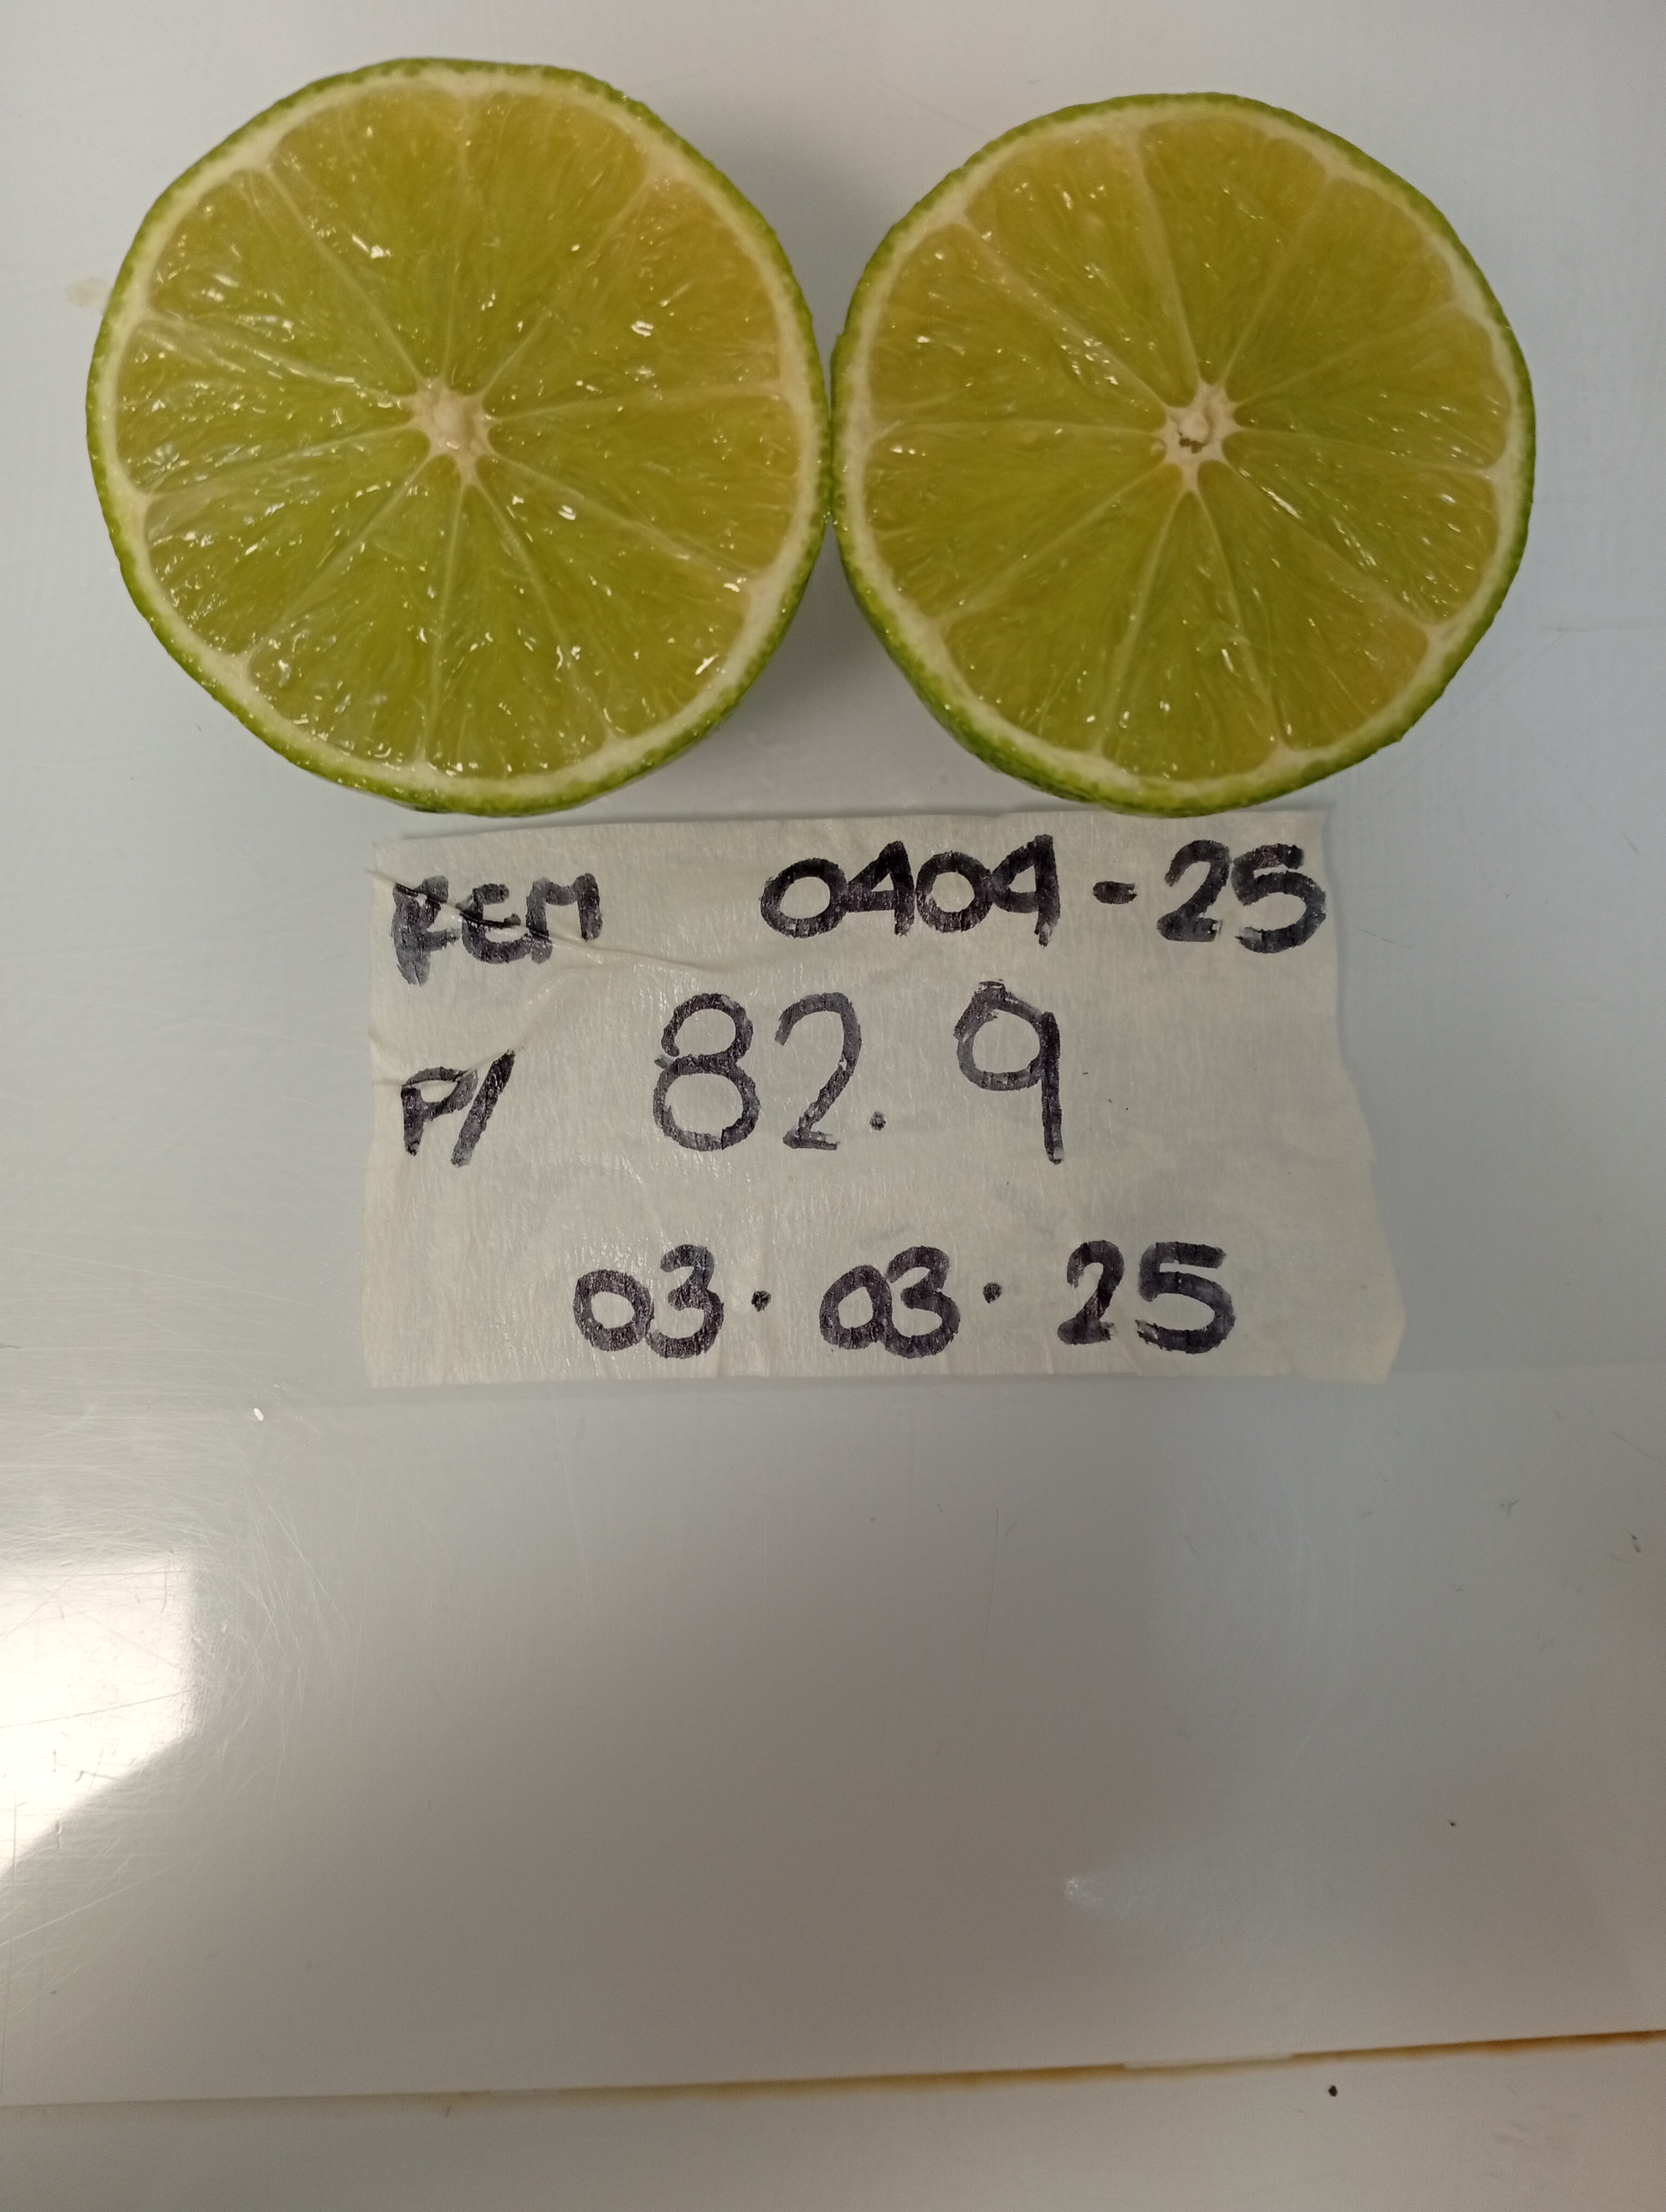 REM 0404-25
P/ 82.9
03.03.25